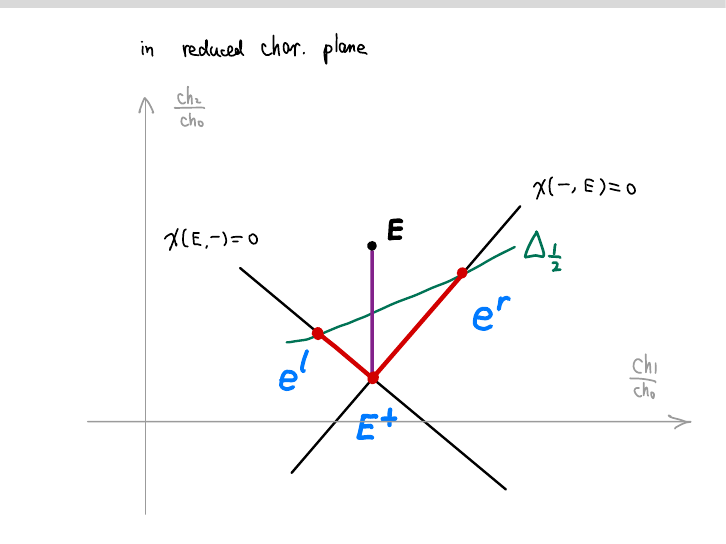 in reduced char. plane
ch₂/ch₀
χ(-, E)=0
E
χ(E,-)=0
Δ½
eʳ
eˡ
ch₁/ch₀
E⁺